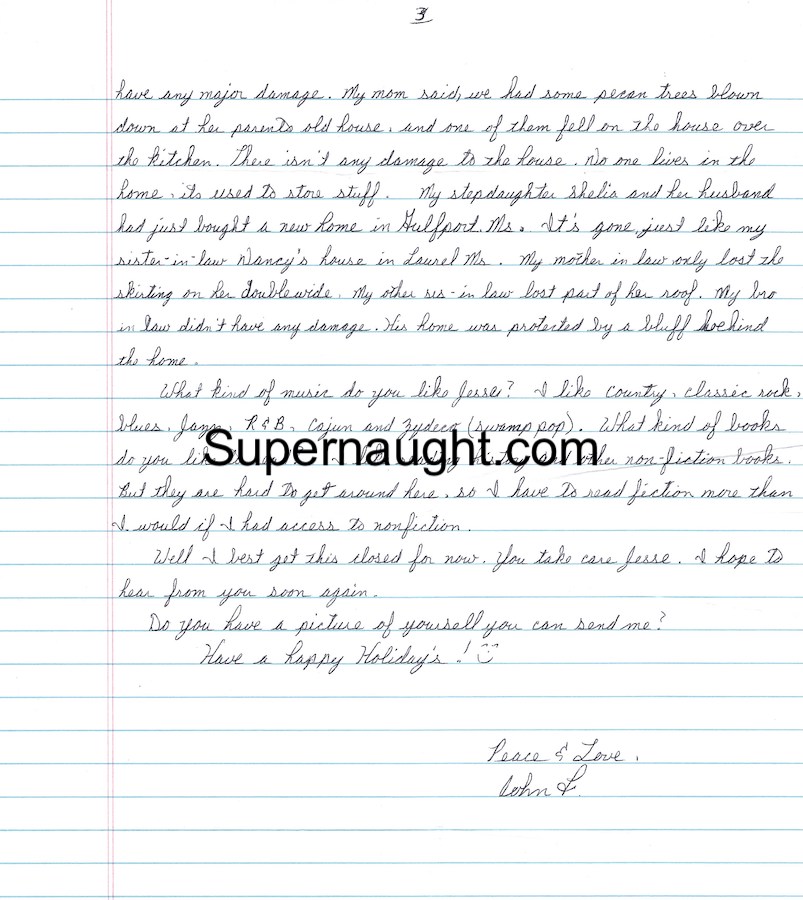 3
have any major damage. My mom said, we had some pecan trees blown
down at her parents old house, and one of them fell on the house over
the kitchen. There isn't any damage to the house. No one lives in the
home, its used to store stuff. My stepdaughter Shelia and her husband
had just bought a new home in Gulfport Ms. It's gone, just like my
sister-in-law Nancy's house in Laurel Ms. My mother in law only lost the
skirting on her doublewide. My other sis-in law lost part of her roof. My bro
in law didn't have any damage. His home was protected by a bluff behind
the home.
What kind of music do you like Jesse? I like country, classic rock,
blues, Jazz, R&B, Cajun and Zydeco (swamp pop). What kind of books
Supernaught.com
do you like other non-fiction books.
But they are hard to get around here, so I have to read fiction more than
I would if I had access to nonfiction.
Well I best get this closed for now. You take care Jesse. I hope to
hear from you soon again.
Do you have a picture of yourself you can send me?
Have a happy Holiday's!
Peace & Love,
John F.